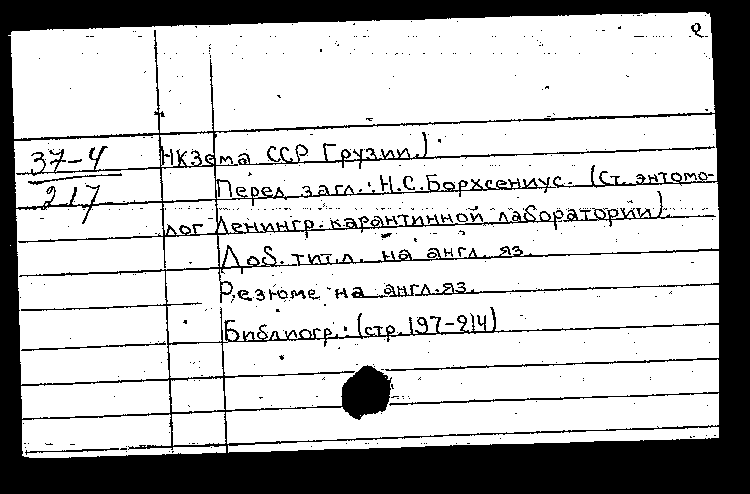 2
37-4
217
НКЗема ССР Грузии.)
Перед загл.: Н.С. Борхсениус. (Ст. энтомо-
лог Ленингр. карантинной лаборатории).
Доб. тит. л. на англ. яз.
Резюме на англ. яз.
Библиогр.: (стр. 197-214)